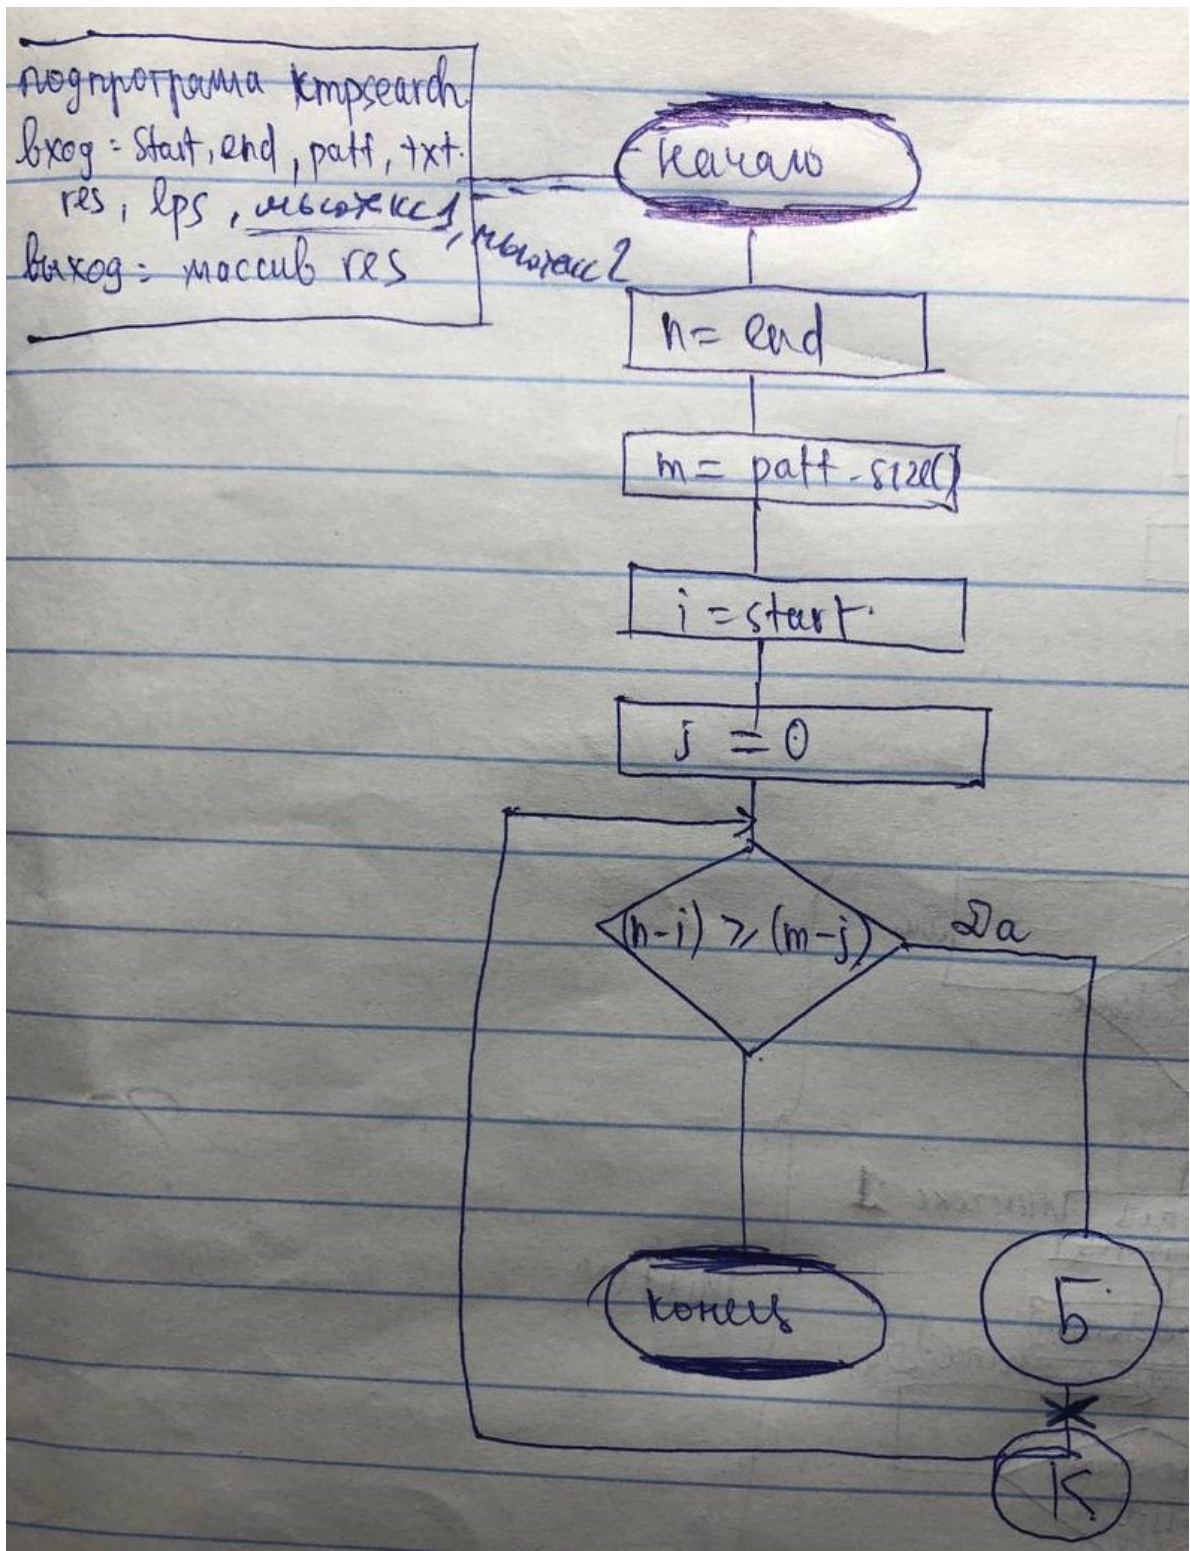 подпрограма kmpsearch
вход: Start, end, patt, txt.
res, lps, мьютекс1, мьютекс2
выход: массив res
Начало
n = end
m = patt.size()
i = start.
j = 0
(n-i) ⩾ (m-j)
Да
конец
Б
К